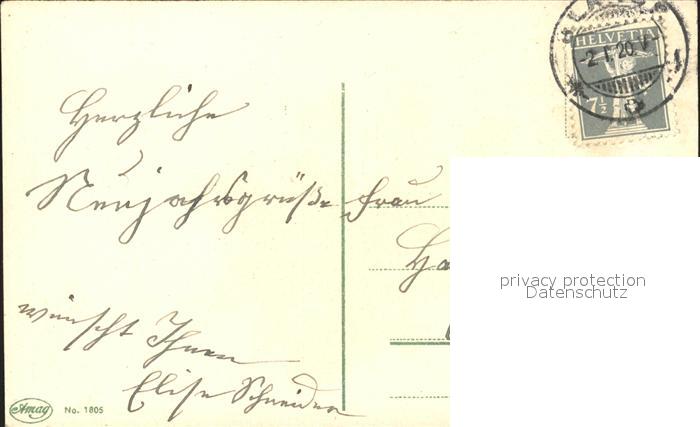 HELVETIA
2.I.20.V
7½
Herzliche
Neujahrsgrüße
wünscht Ihnen
Elise Schneider
Frau
Ha
privacy protection
Datenschutz
Amag
No. 1805